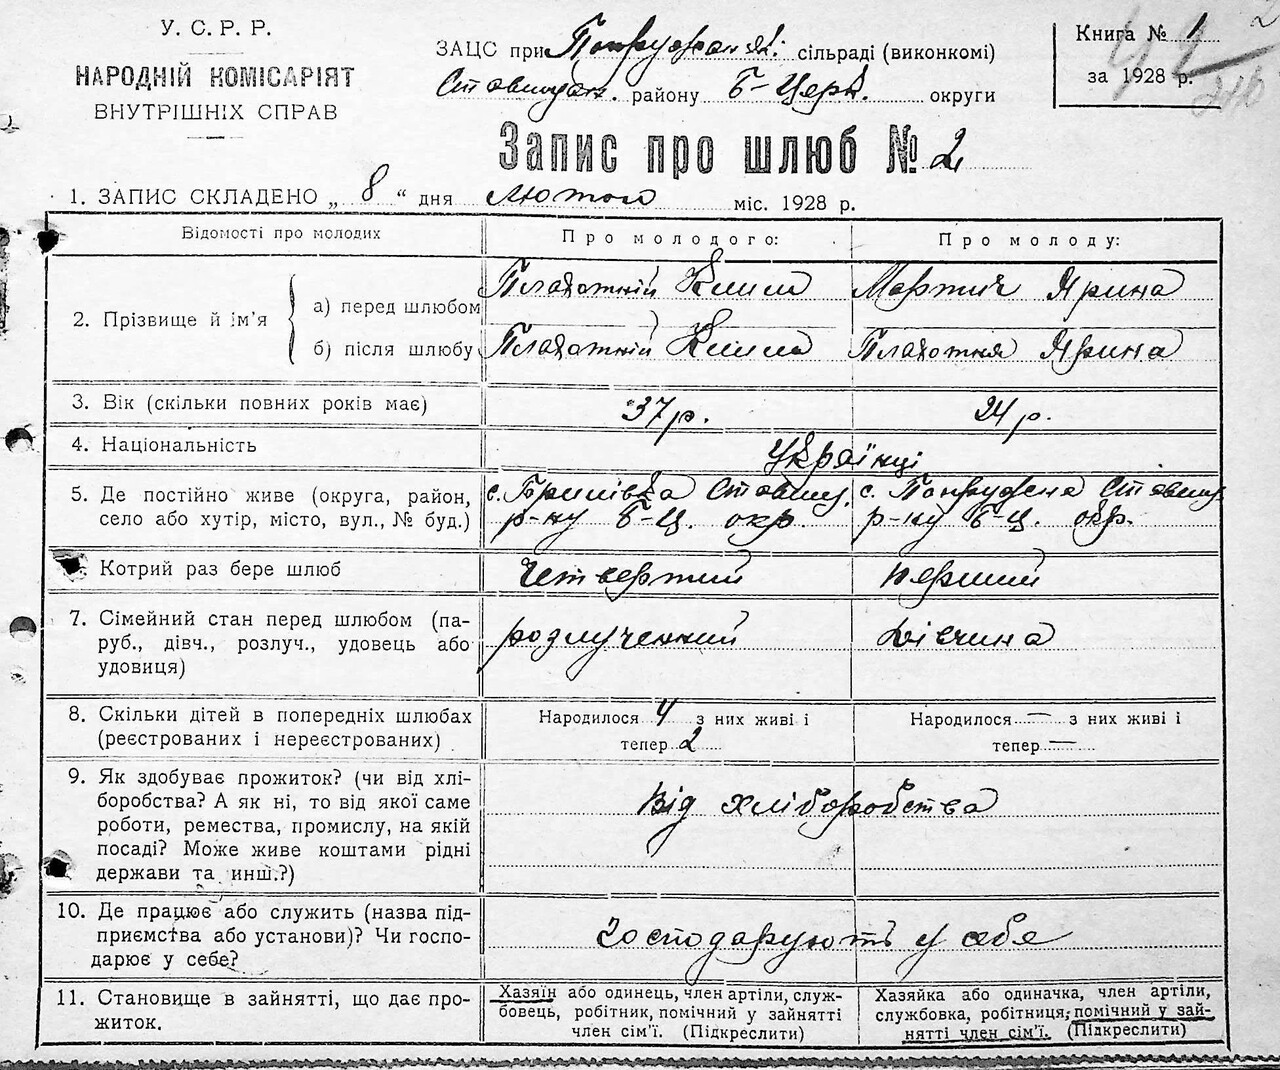 У. С. Р. Р.
НАРОДНІЙ КОМІСАРІЯТ
ВНУТРІШНІХ СПРАВ
ЗАЦС при сільраді (виконкомі)
району Б-Церк. округи
Книга № 1
за 1928 р.
Запис про шлюб № 2
1. ЗАПИС СКЛАДЕНО „ 8 “ дня лютого міс. 1928 р.
Відомості про молодих Про молодого: Про молоду:
2. Прізвище й ім’я
а) перед шлюбом Плахотній Клим Мартич Ярина
б) після шлюбу Плахотній Клим Плахотня Ярина
3. Вік (скільки повних років має) 37 р. 24 р.
4. Національність Українці
5. Де постійно живе (округа, район, с. Ставищ. с. Ставищ.
село або хутір, місто, вул., № буд.) р-ну Б-Ц. окр. р-ну Б-Ц. окр.
Котрий раз бере шлюб Четвертий перший
7. Сімейний стан перед шлюбом (па-
руб., дівч., розлуч., удовець або розлученний дівчина
удовиця)
8. Скільки дітей в попередніх шлюбах Народилося 4 з них живі і Народилося — з них живі і
(реєстрованих і нереєстрованих) тепер 2 тепер —
9. Як здобуває прожиток? (чи від хлі-
боробства? А як ні, то від якої саме Від хліборобства
роботи, ремества, промислу, на якій
посаді? Може живе коштами рідні
держави та инш.?)
10. Де працює або служить (назва під-
приємства або установи)? Чи госпо- Господарують у себе
дарює у себе?
11. Становище в зайнятті, що дає про- Хазяїн або одинець, член артіли, служ- Хазяйка або одиначка, член артіли,
житок. бовець, робітник, помічний у зайнятті службовка, робітниця; помічний у зай-
член сім’ї. (Підкреслити) нятті член сім’ї. (Підкреслити)